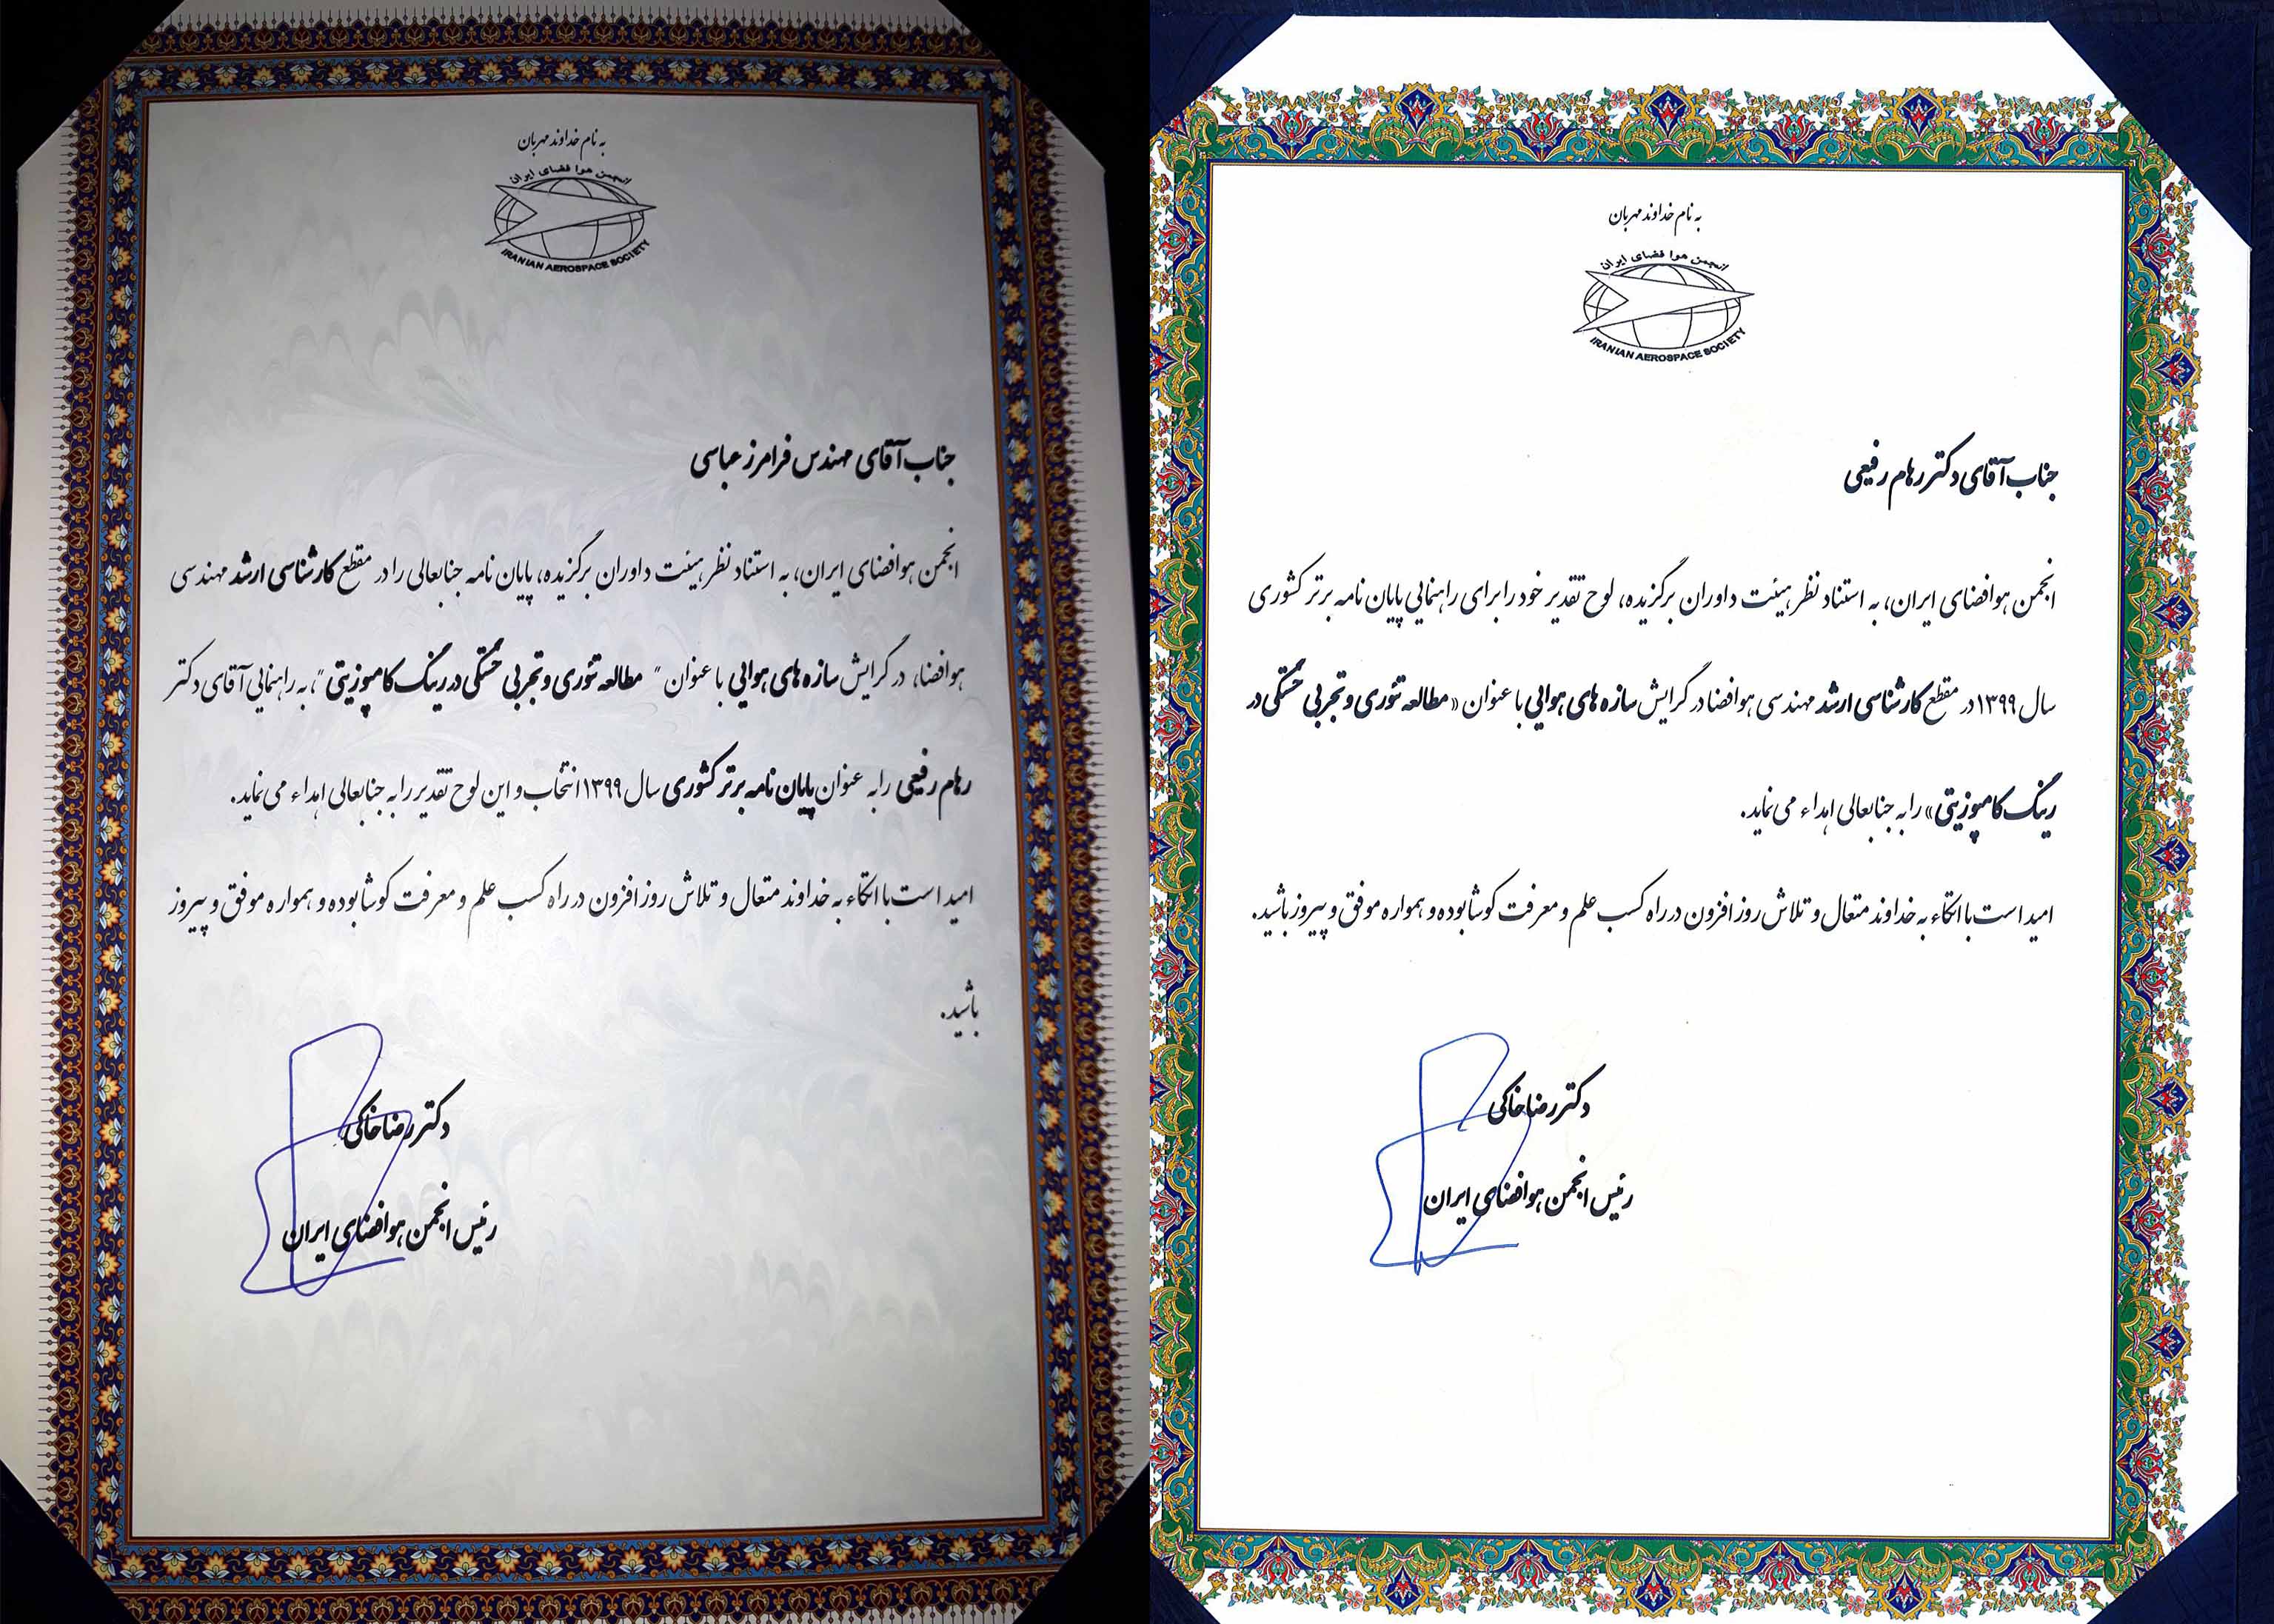 به نام خداوند مهربان
انجمن هوا فضای ایران
IRANIAN AEROSPACE SOCIETY
جناب آقای مهندس فرامرز عباسی
انجمن هوافضای ایران، به استناد نظر هیئت داوران برگزیده، پایان نامه جنابعالی را در مقطع کارشناسی ارشد مهندسی
هوافضا، در گرایش سازه های هوایی با عنوان " مطالعه تئوری و تجربی خستگی در رینگ کامپوزیتی "، به راهنمایی آقای دکتر
رهام رفیعی را به عنوان پایان نامه برتر کشوری سال ۱۳۹۹ انتخاب و این لوح تقدیر را به جنابعالی اهداء می نماید.
امید است با اتکاء به خداوند متعال و تلاش روز افزون در راه کسب علم و معرفت کوشا بوده و همواره موفق و پیروز
باشید.
دکتر رضا خاکی
رئیس انجمن هوافضای ایران
به نام خداوند مهربان
انجمن هوا فضای ایران
IRANIAN AEROSPACE SOCIETY
جناب آقای دکتر رهام رفیعی
انجمن هوافضای ایران، به استناد نظر هیئت داوران برگزیده، لوح تقدیر خود را برای راهنمایی پایان نامه برتر کشوری
سال ۱۳۹۹ در مقطع کارشناسی ارشد مهندسی هوافضا در گرایش سازه های هوایی با عنوان «مطالعه تئوری و تجربی خستگی در
رینگ کامپوزیتی» را به جنابعالی اهداء می نماید.
امید است با اتکاء به خداوند متعال و تلاش روز افزون در راه کسب علم و معرفت کوشا بوده و همواره موفق و پیروز باشید.
دکتر رضا خاکی
رئیس انجمن هوافضای ایران